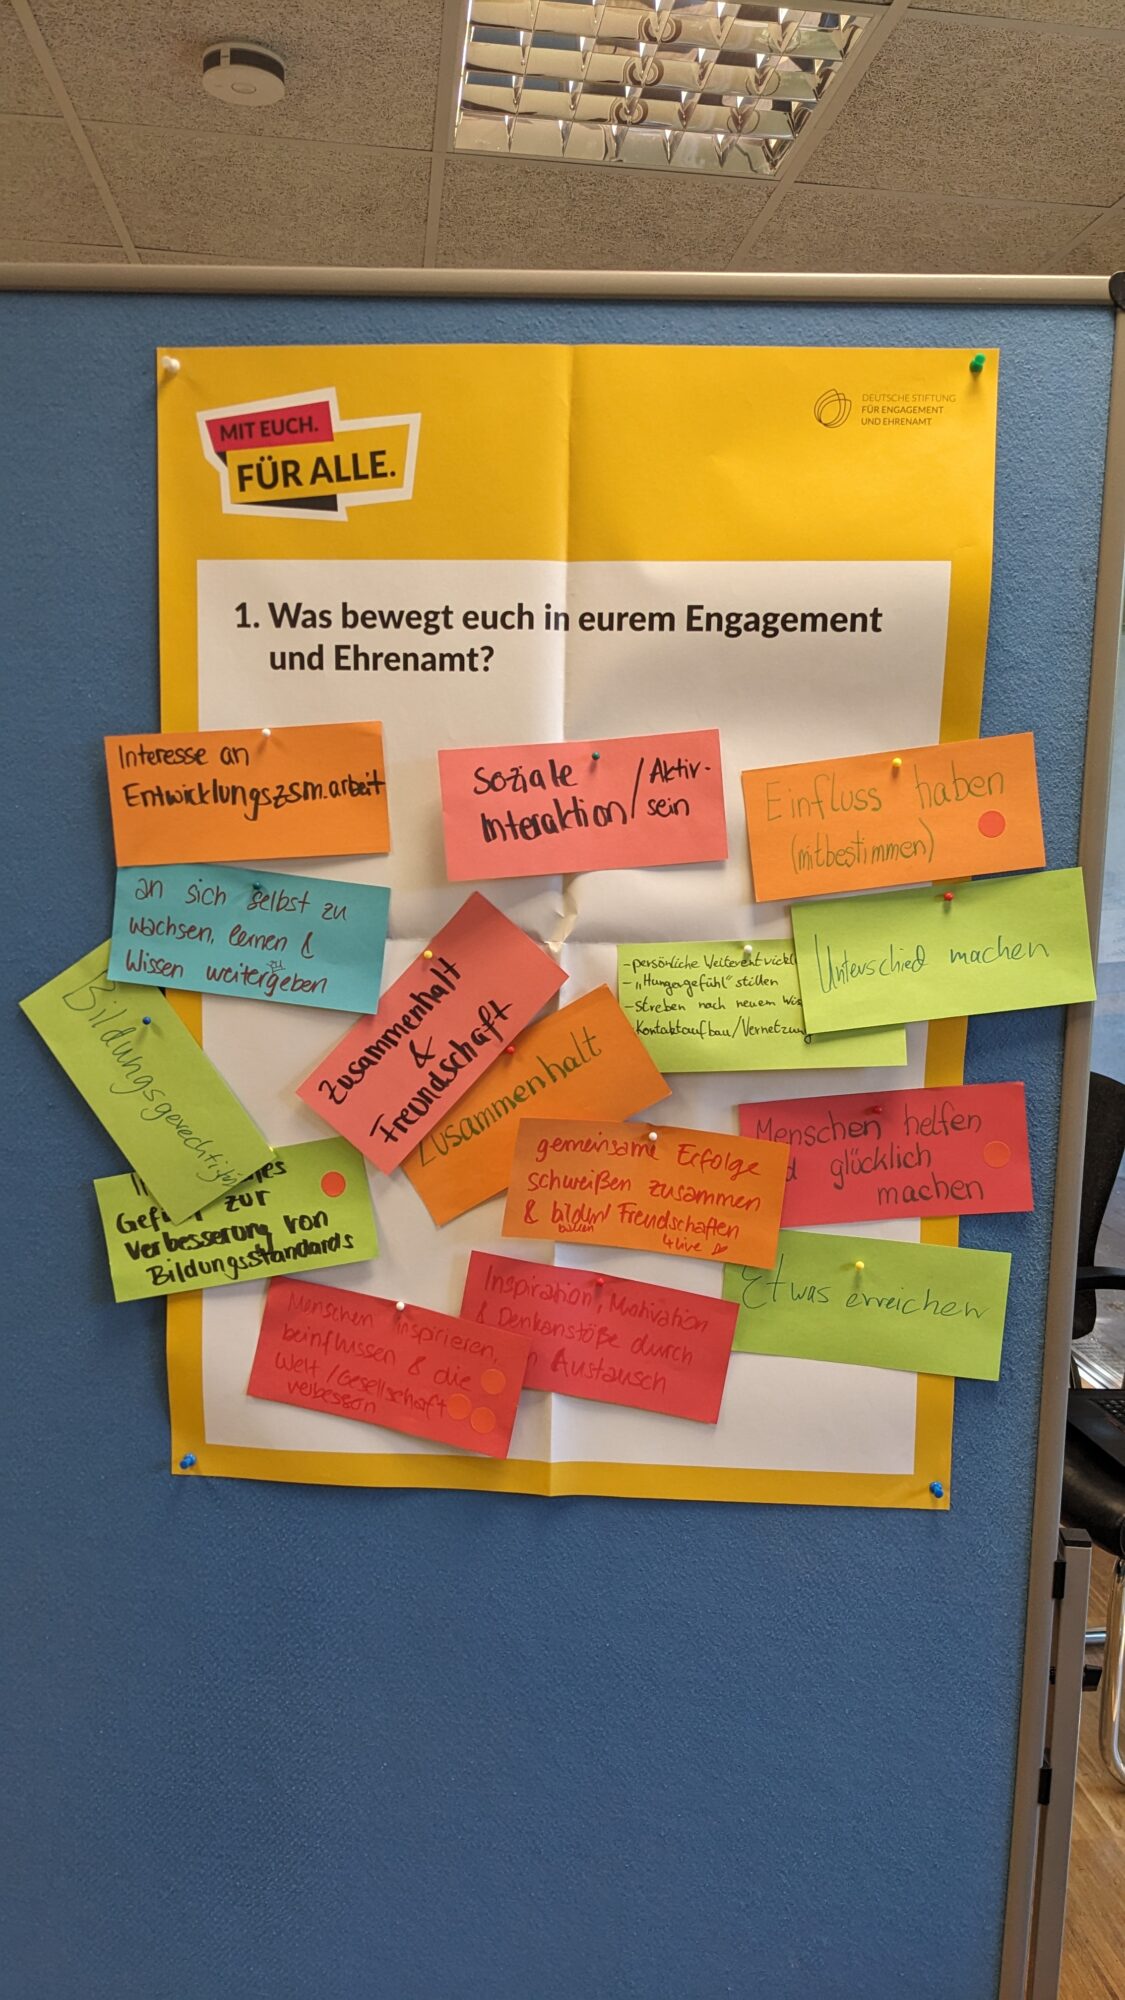 MIT EUCH.
FÜR ALLE.
DEUTSCHE STIFTUNG
FÜR ENGAGEMENT
UND EHRENAMT
1. Was bewegt euch in eurem Engagement
und Ehrenamt?
Interesse an
Entwicklungszsm.arbeit
Soziale
Interaktion/
Aktiv-
sein
Einfluss haben
(mitbestimmen)
an sich selbst zu
wachsen, lernen &
Wissen weiter
zu
geben
Unterschied machen
Zusammenhalt
&
Freundschaft
-persönliche
-„Hungergefühl" stillen
-Streben nach neuem
-Kontaktaufbau/Vernetzung
Bildungsgerechtig
Zusammenhalt
Menschen helfen
glücklich
machen
gemeinsame Erfolge
schweißen zusammen
& bilden/ Freundschaften
bauen
4 live
zur
Verbesserung von
Bildungsstandards
Etwas erreichen
Inspiration, Motivation
& Denkanstöße durch
Austausch
Menschen inspirieren,
beinflussen & die
Welt/Gesellschaft
verbessern